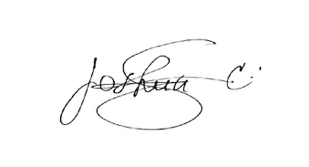 Joshua C.